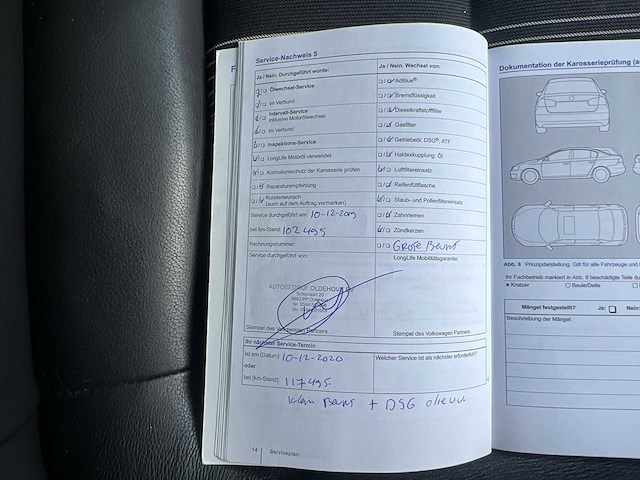 Service-Nachweis 5
Ja / Nein, Durchgeführt wurde:
Ölwechsel-Service
im Verbund
Intervall-Service
inklusive Motorölwechsel
im Verbund
Inspektions-Service
LongLife Motoröl verwendet
Korrosionsschutz der Karosserie prüfen
Reparaturempfehlung
Kundenwunsch
(auch auf dem Auftrag vermerken)
Service durchgeführt am: 10-12-2019
bei km-Stand: 102495
Rechnungsnummer:
Service durchgeführt von:
AUTOBEDRIJF OLDEHOVE
Stempel des Volkswagen Partners
Ja / Nein, Wechsel von:
AdBlue®
Bremsflüssigkeit
Dieselkraftstofffilter
Gasfilter
Getriebeöl: DSG®, ATF
Haldexkupplung: Öl
Luftfiltereinsatz
Reifenfüllflasche
Staub- und Pollenfiltereinsatz
Zahnriemen
Zündkerzen
Grote Beurt
LongLife Mobilitätsgarantie
Stempel des Volkswagen Partners
Ihr nächster Service-Termin
ist am (Datum): 10-12-2020
oder
bei (km-Stand): 117495
Welcher Service ist als nächster erforderlich?
Klein Beurt + DSG olie
14 Serviceplan
Dokumentation der Karosserieprüfung (a
Abb. 8 Prinzipdarstellung. Gilt für alle Fahrzeuge und
Ihr Fachbetrieb markiert in Abb. 8 beschädigte Teile du
× Kratzer ○ Beule/Delle
Mängel festgestellt? Ja: Nein:
Beschreibung der Mängel: